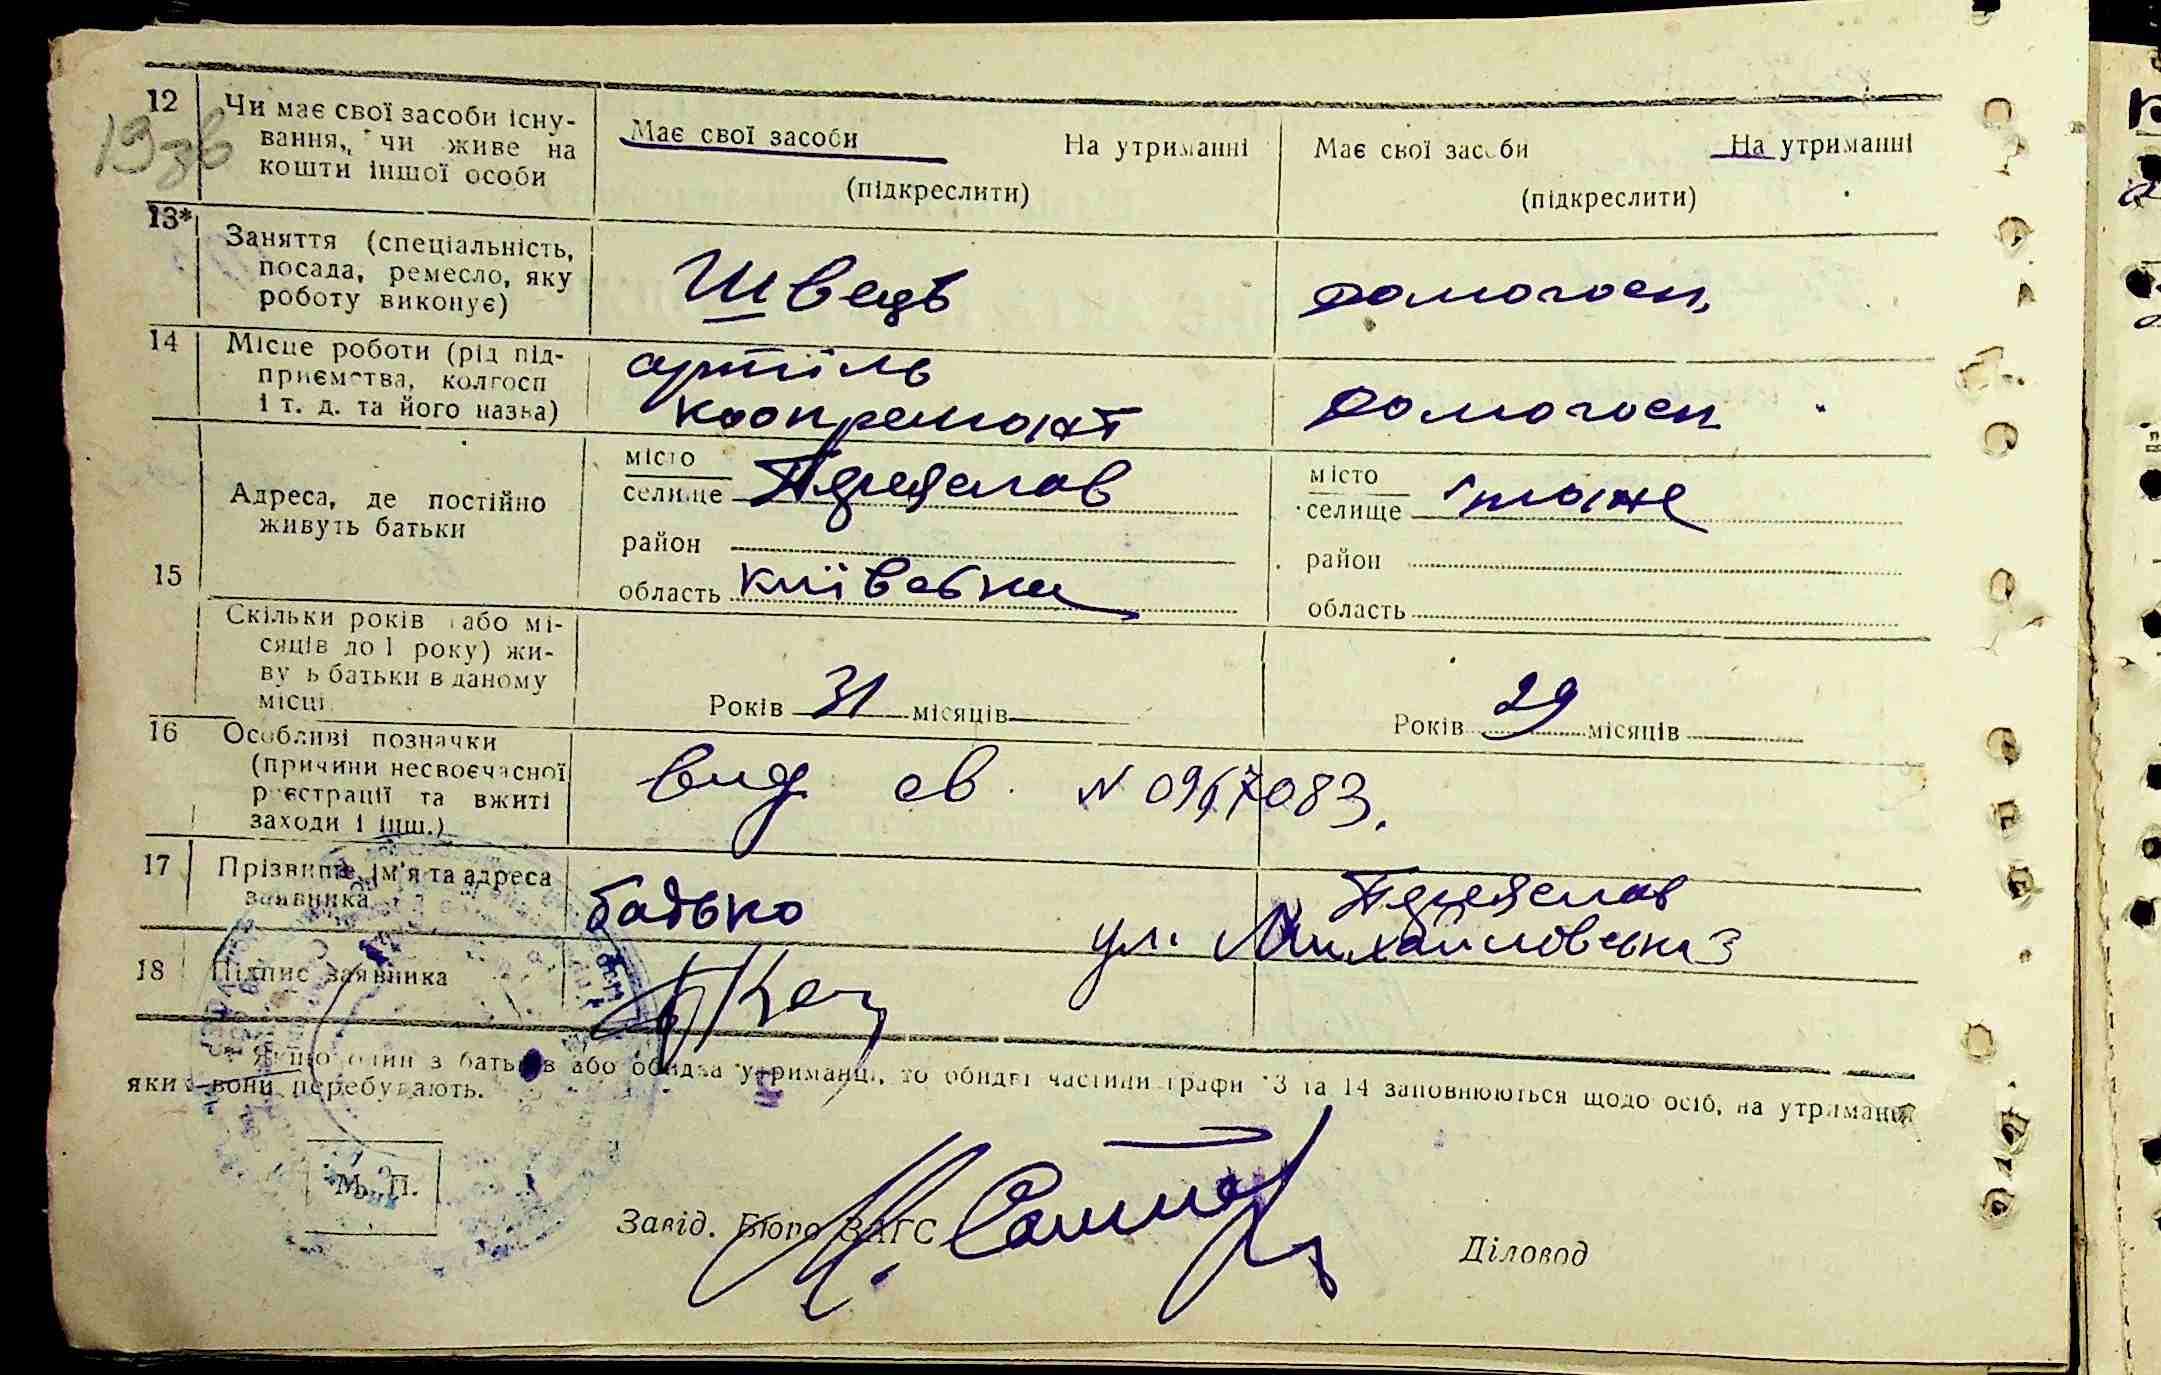 12
Чи має свої засоби існу-
вання, чи живе на
кошти іншої особи
Має свої засоби На утриманні
(підкреслити)
Має свої засоби На утриманні
(підкреслити)
13*
Заняття (спеціальність,
посада, ремесло, яку
роботу виконує)
Швець
домогосп.
14
Місце роботи (рід під-
приємства, колгосп
і т. д. та його назва)
артіль
коопремонт
домогосп
15
Адреса, де постійно
живуть батьки
місто
селище Переяслав
район
область Київська
місто
селище тоже
район
область
Скільки років (або мі-
сяців до 1 року) жи-
вуть батьки в даному
місці
Років 31 місяців
Років 29 місяців
16
Особливі позначки
(причини несвоєчасної
реєстрації та вжиті
заходи і інш.)
вид. св. N 0967083.
17
Прізвище, ім'я та адреса
заявника
батько
Переяслав
ул. Михайловська 3
18
Підпис заявника
* Якщо один з батьків або обидва утриманці, то обидві частини графи 13 та 14 заповнюються щодо осіб, на утриманні
яких вони перебувають.
М. П.
Завід. Бюро ЗАГС
Діловод